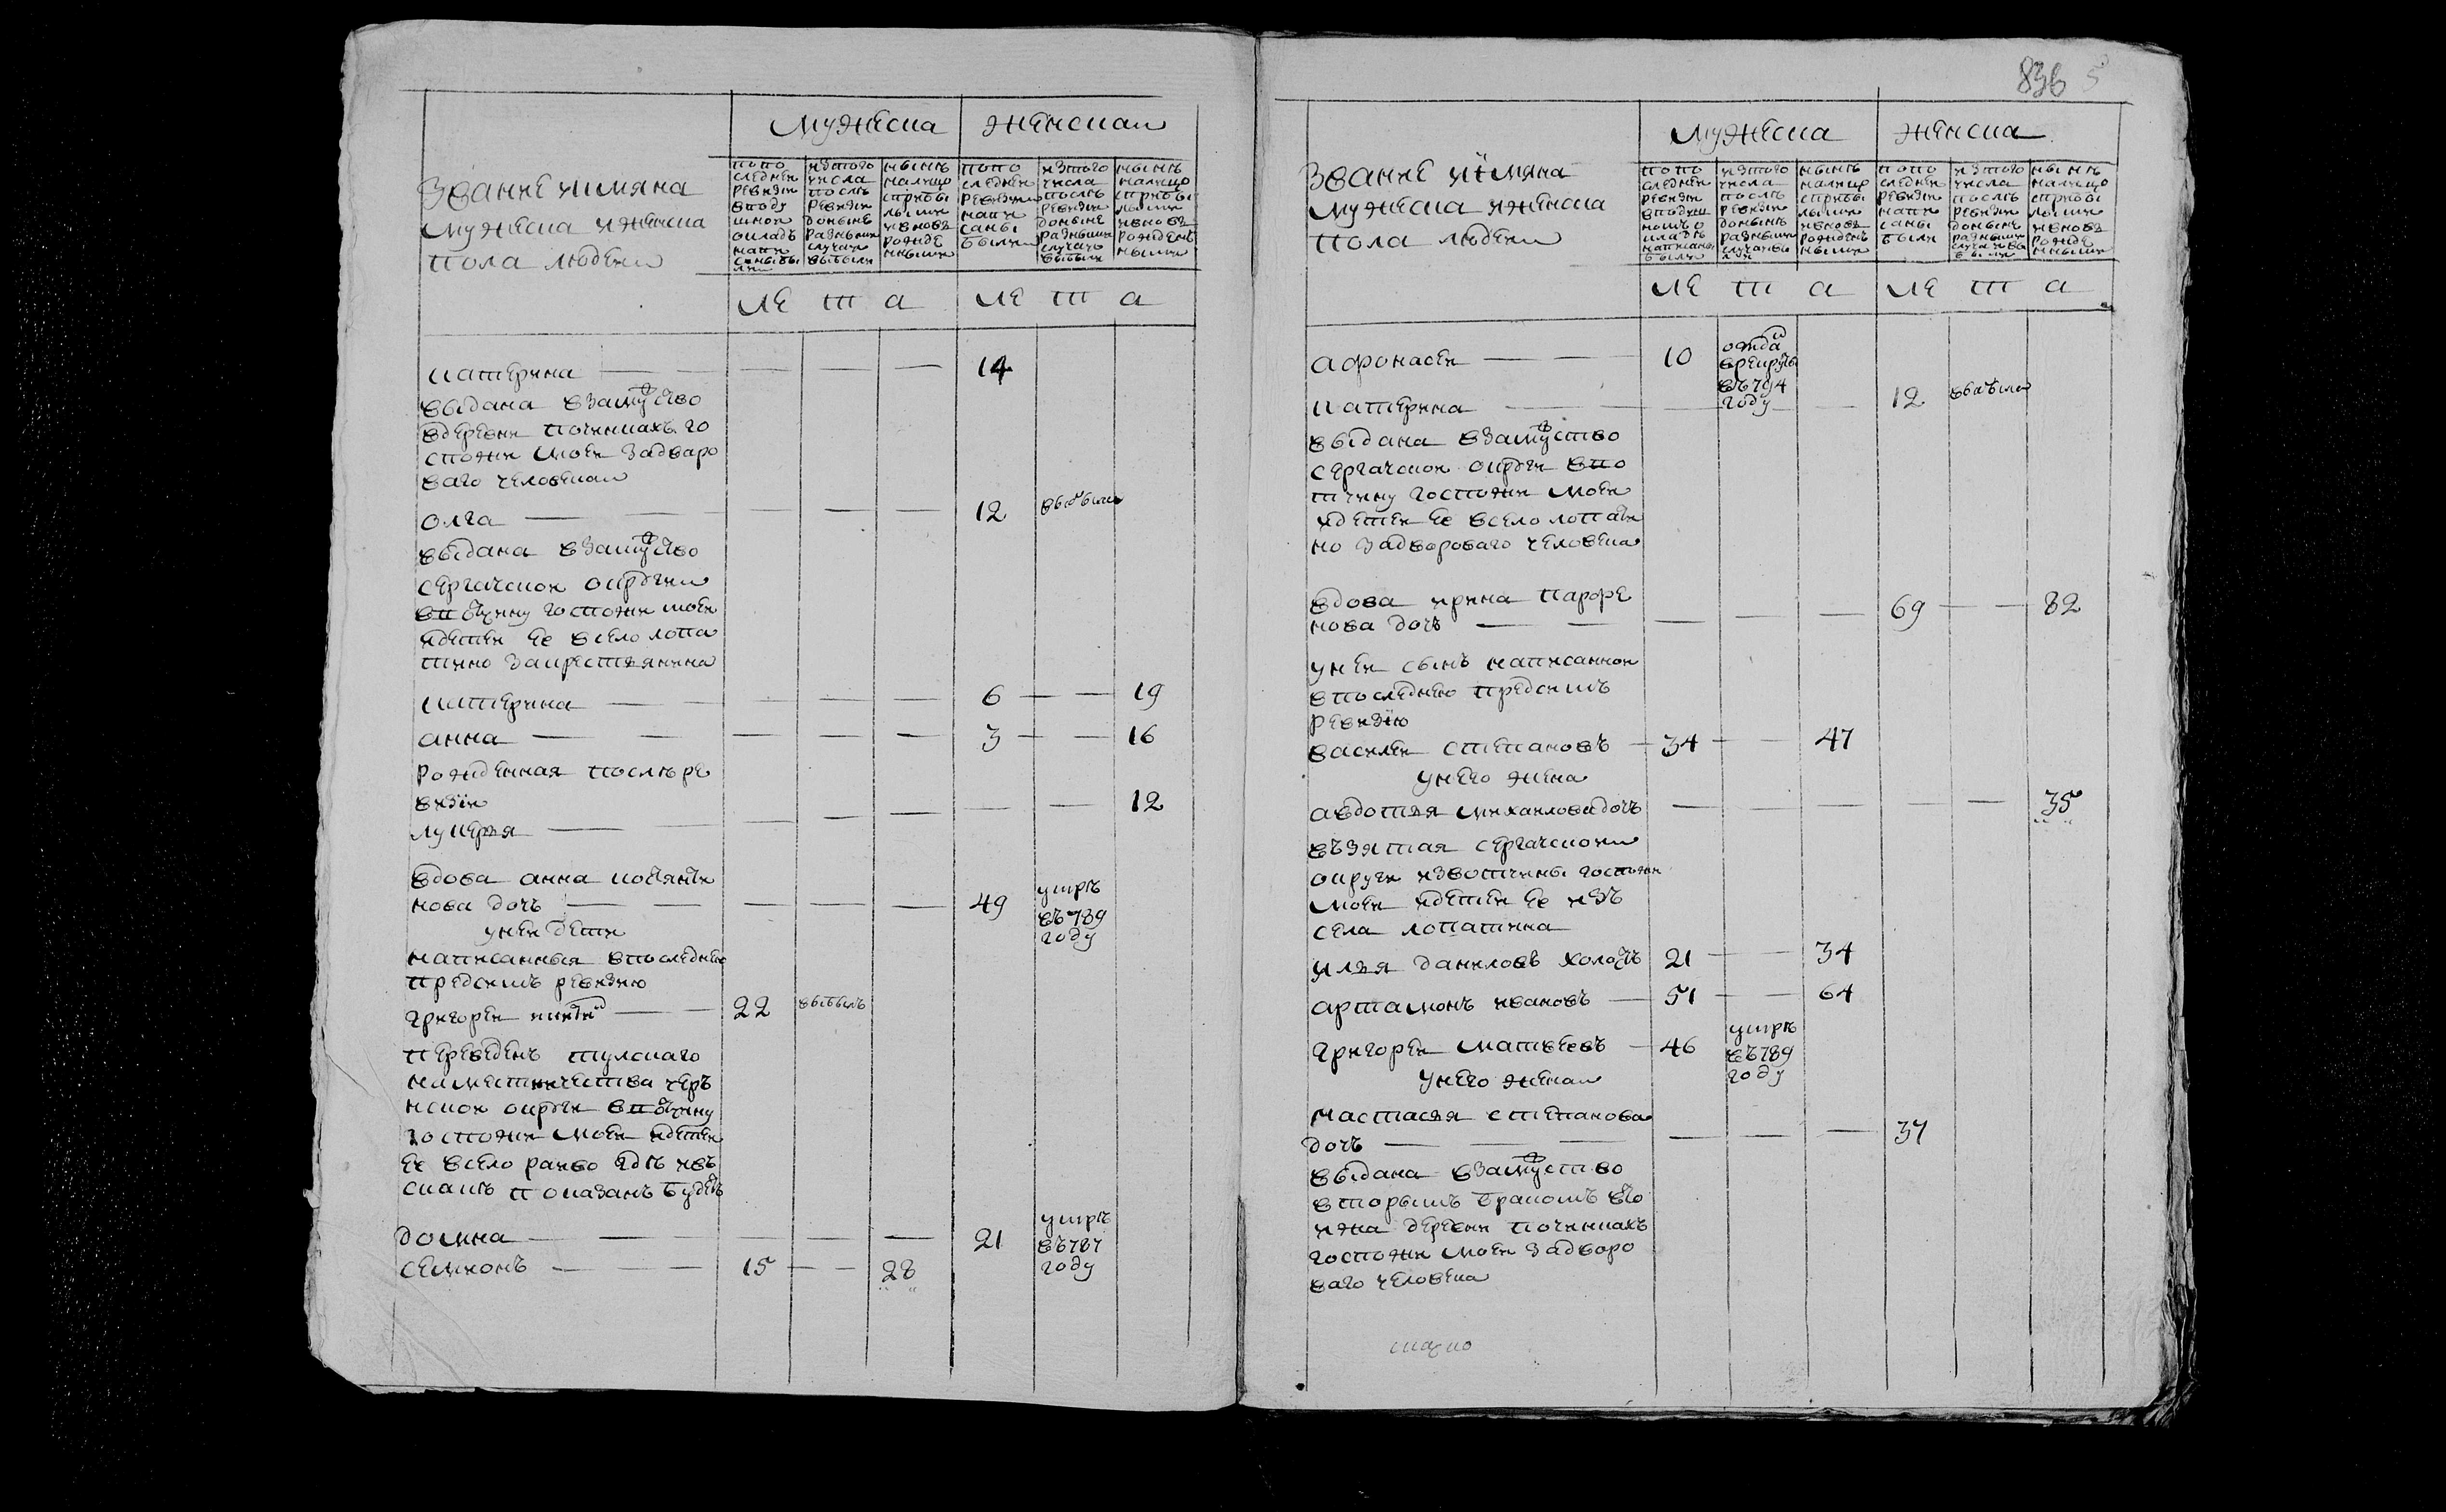 мужеска женскаи
звание иимяна
мужеска иженска
пола людеи
попо
следнеи
ревизии
вподу
шнои
окладъ
напи
саныбы
ли
изтого
числа
после
ревизии
доныне
разными
случаи
выбыли
ныне
налицо
сприбы
лыми
ивновь
рожде
нными
попо
следнеи
ревизии
напи
саны
были
изтого
числа
после
ревизии
доныне
разными
случаи
выбыли
ныне
налицо
сприбы
лыми
ивновь
рожден
ными
ле т а ле т а
катерина 14
выдана взамуство
вдеревни починкахъ го
спожи моеи задваро
ваго человекаи
олга 12 выбыла
выдана взамуство
сергачскои округи
вотчину госпожи моеи
идетеи ее всело лопа
тино закрестьянина
катерина 6 19
анна 3 16
рожденная послъ ре
визiи 12
лукерья
вдова анна костянти
нова дочъ 49 умръ
въ789
году
унеи дети
написанныя впоследнею
предсимъ ревизию
григореи никити 22 выбылъ
переведенъ тулскаго
наместничества черъ
нскои округи вотчину
госпожи моеи идетеи
ее всело раиво гдъ ивъ
скаске показанъ будетъ
домна 21 умръ
въ787
году
семионъ 15 28
836 5
мужеска женска
звание иiмяна
мужеска иженска
пола людеи
попо
следнеи
ревизии
вподуш
номъ о
кладъ
написаны
были
изтого
числа
после
ревизии
доныне
разными
случаи вы
ли
ныне
налицо
сприбы
лыми
ивновь
рожден
ными
попо
следнеи
ревизии
напи
саны
были
изтого
числа
после
ревизии
доныне
разными
случаи вы
были
ныне
налицо
сприбы
лыми
ивновь
рожде
нными
ле т а ле т а
афонасеи 10 отда
врекруты
въ794
году
катерина 12 выбыла
выдана взамуство
сергачскои округи вво
тчину госпожи моеи
идетеи ее всело лопати
но задвороваго человека
вдова ирина парфе
нова дочъ 69 82
унеи сынъ написаннои
впоследнею предсимъ
ревизiю
василеи степановъ 34 47
унего жена
авдотья михаиловадочъ 35
възятая сергачскои
округи извотчины госпожи
моеи идетеи ее изъ
села лопатина
илья даниловъ холостъ 21 34
артамонъ ивановъ 51 64
григореи матвеевъ 46 умръ
въ789
году
унего женаи
настасья степанова
дочъ 37
выдана взамуство
вторымъ бракомъ его
жена деревни починкахъ
госпожи моеи задворо
ваго человека